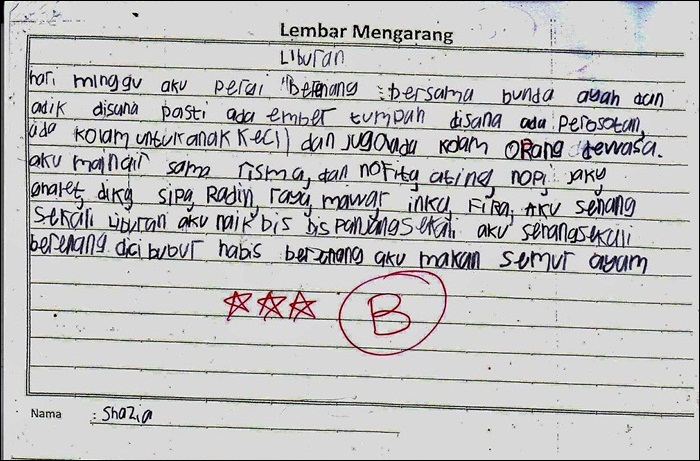 Lembar Mengarang
Liburan
hari minggu aku pergi Berenang bersama bunda ayah dan
adik disana pasti ada ember tumpah disana ada perosotan,
ada kolam untuk anak kecil dan juga ada kolam ORang dewasa.
aku mandir sama risma, dan nofita ating, nopi jaky
anaret, diky sipa, Radin, raya, mawar inka, Fira, Aku senang
sekali liburan aku naik bis bis panjang sekali aku senang sekali
berenang dicibubur habis berenang aku makan semur ayam
B
Nama : Shazia